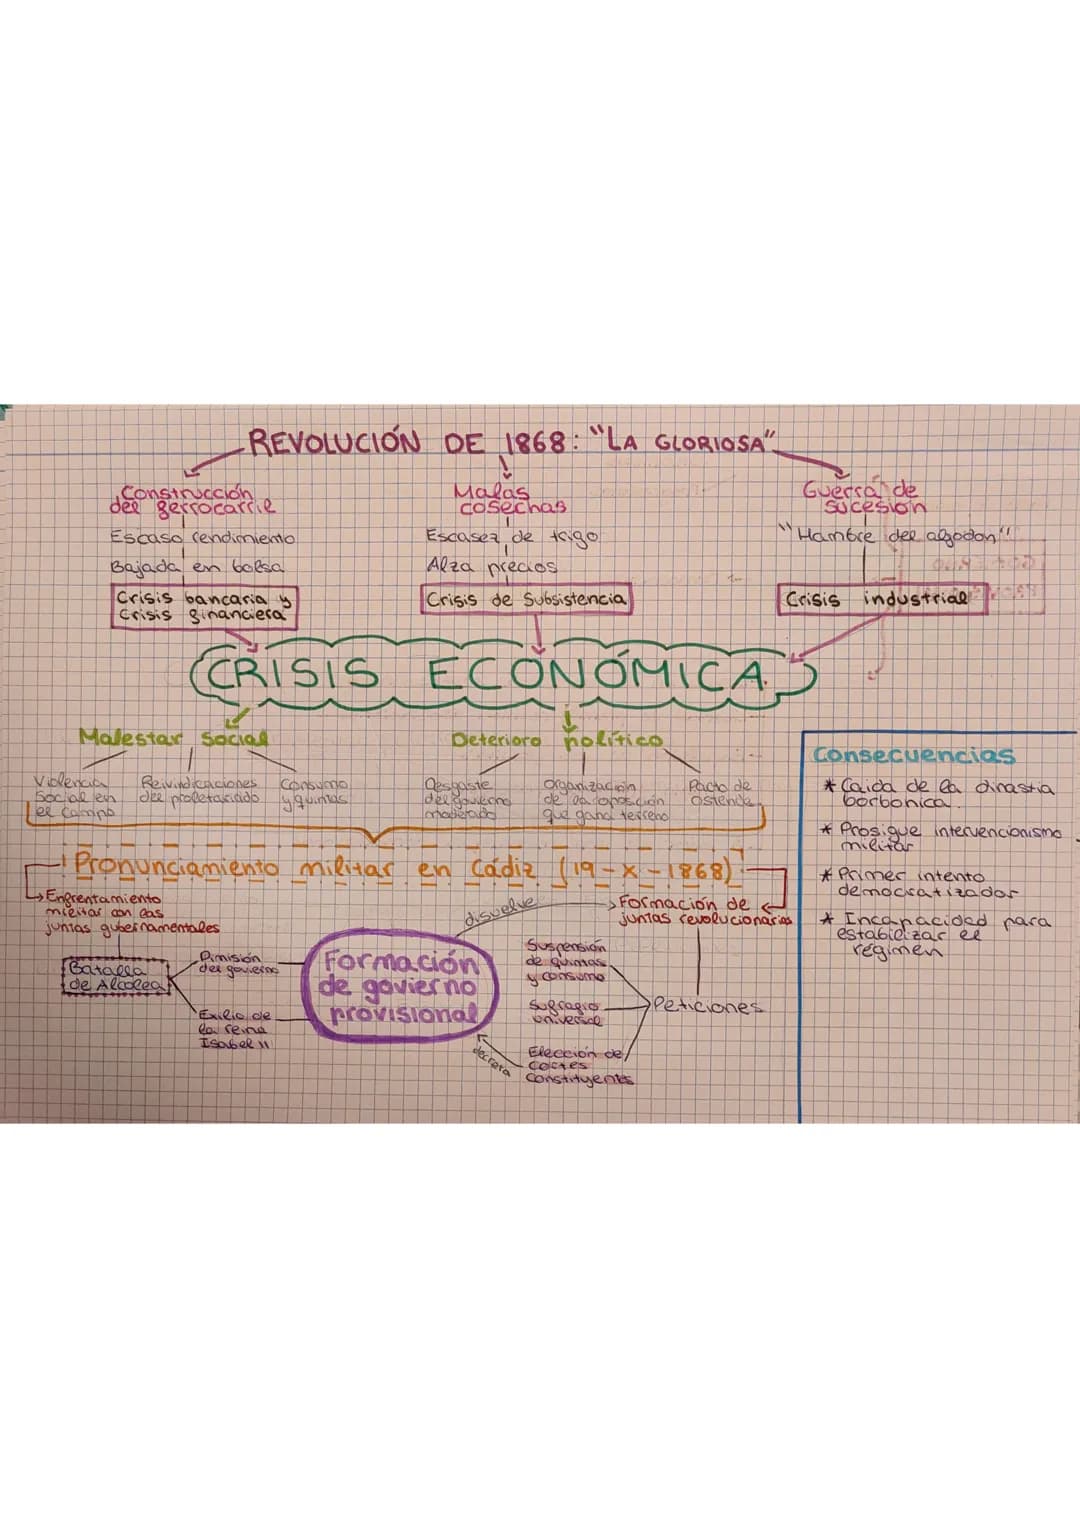 REVOLUCIÓN DE 1868: "LA GLORIOSA"
Construcción
del ferrocarril
Escaso rendimiento
Bajada en bolsa
Crisis bancaria y
Crisis financiera
Malas
cosechas
Escasez de trigo
Alza precios
Crisis de Subsistencia
Guerra de
sucesión
"Hambre del algodon"
Crisis industrial
CRISIS ECONÓMICA
Malestar Social
Violencia
Social en
el campo
Reivindicaciones
del proletariado
Consumo
y quintas
Deterioro político
Desgaste
del govierno
moderado
Organización
de la oposición
que gana terreno
Pacto de
Ostende
Pronunciamiento militar en Cádiz (19-X-1868)
Enfrentamiento
militar con las
juntas gubernamentales
Batalla
de Alcolea
Dimisión
del govierno
Exilio de
la reina
Isabel II
Formación
de govierno
provisional
disuelve
decreta
Formación de
juntas revolucionarias
Peticiones
Suspensión
de quintas
y consumo
Sufragio
universal
Elección de
Cortes
Constituyents
Consecuencias
* Caida de la dinastia
borbónica.
* Prosigue intervencionismo
militar
* Primer intento
democratizador
* Incapacidad para
estabilizar el
régimen